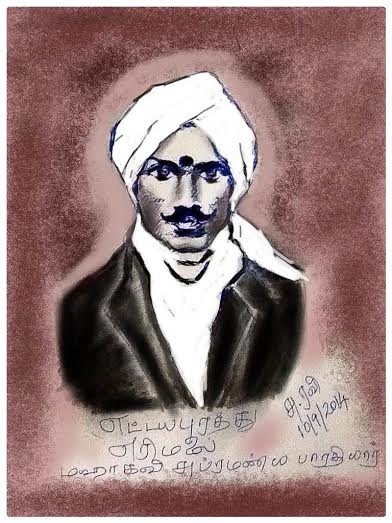 எட்டயபுரத்து
எரிமலை
மஹாகவி சுப்ரமண்ய பாரதியார்
சு. ரவி
10/9/2014